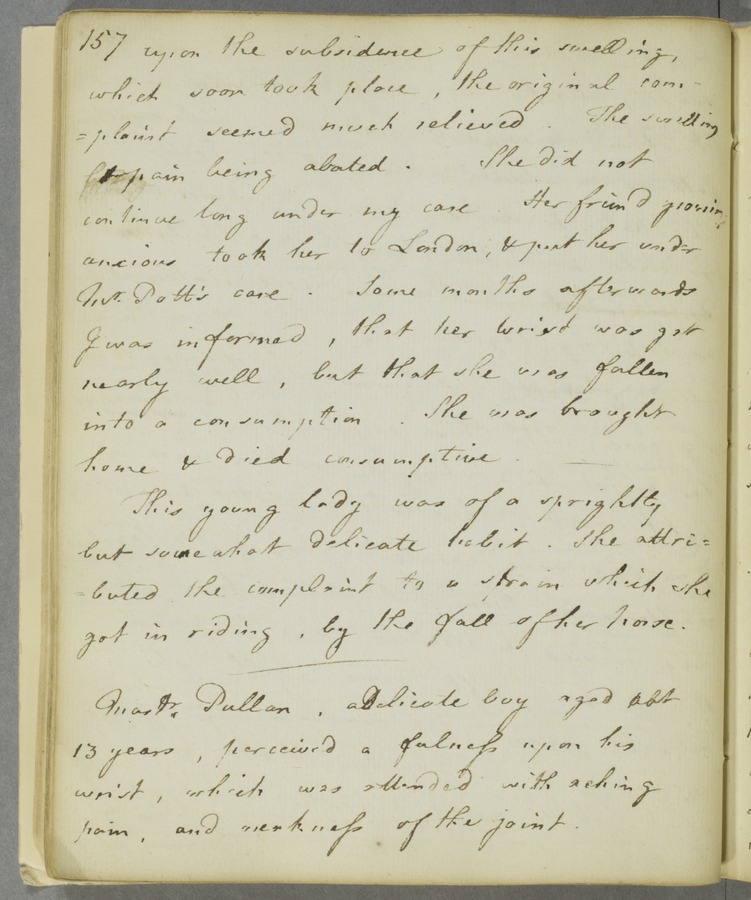 157 upon the subsidence of this swelling,
which soon took place, the original com-
=plaint seemed much relieved. The swelling
& pain being abated. She did not
continue long under my care. Her friend growing
anxious took her to London, & put her under
Mr. Pott's care. Some months afterwards
I was informed, that her wrist was got
nearly well, but that she was fallen
into a consumption. She was brought
home & died consumptive.
This young lady was of a sprightly
but somewhat delicate habit. She attri=
=buted the complaint to a strain which she
got in riding, by the fall of her horse.
Mastr. Pullan, a delicate boy aged abt
13 years, perceived a fulness upon his
wrist, which was attended with aching
pain, and weakness of the joint.